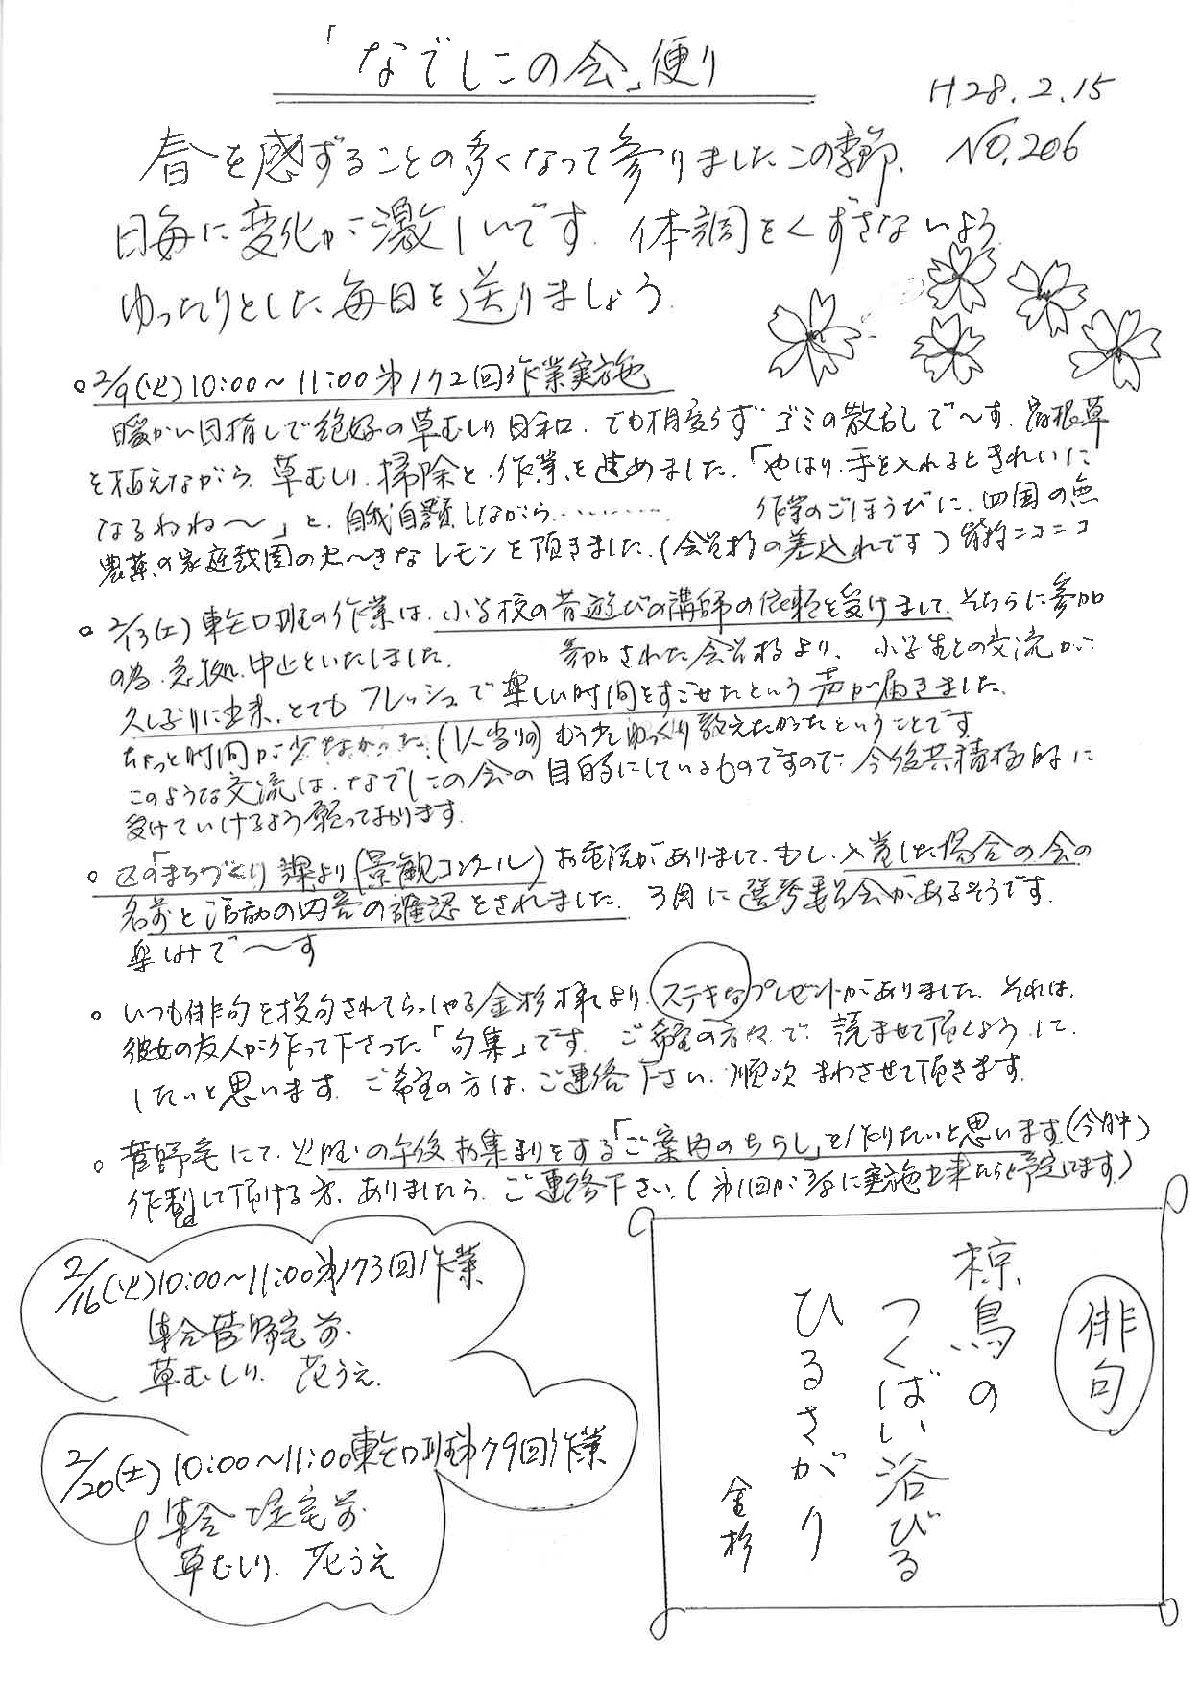 「なでしこの会」便り
H28.2.15
NO.206
春を感ずることの多くなって参りましたこの季節、
日毎に変化が激しいです。体調をくずさないよう
ゆったりとした毎日を送りましょう。
○ 2/9(火)10:00〜11:00第172回作業実施
暖かい日指しで絶好の草むしり日和、でも相変らずゴミの散乱しで〜す。宿根草
を植えながら、草むしり、掃除と、作業を進めました。「やはり、手を入れるときれいに
なるわね〜」と、自我自賛しながら…………
作業のごほうびに、四国の無
農薬の家庭菜園の大〜きなレモンを頂きました。(会員様の差込れです)皆様ニコニコ
○ 2/13(土)東モロ班の作業は、小学校の昔遊びの講師の依頼を受けまして、そちらに参加
の為、急拠、中止といたしました。
参加された会員様より、小学生との交流が
久しぶりに出来、とてもフレッシュで楽しい時間をすごせたという声が届きました。
ちょっと時間が少なかった、(1人当りの)もう少しゆっくり教えたかったということです
このような交流は、なでしこの会の目的にしているものですので、今後共積極的に
受けていけるよう願っております。
○ 区の「まちづくり課より(景観コンクール)お電話がありまして、もし、入賞した場合の会の
名前と活動の内容の確認をされました。3月に選考委員会があるそうです。
楽しみで〜す
○ いつも俳句を投句されてらっしゃる金杉様より、ステキなプレゼントがありました。それは、
彼女の友人が作って下さった「句集」です。ご希望の方々で、読ませて頂くように、
したいと思います。ご希望の方は、ご連絡下さい。順次まわさせて頂きます。
○ 菅野宅にて、火曜の午後お集まりをする「ご案内のちらし」を作りたいと思います(今月中)
作製して頂ける方、ありましたら、ご連絡下さい。(第1回が3/8に実施出来たらと予定してます)
2/16(火)10:00〜11:00第173回作業
集合菅野宅前
草むしり、花うえ
2/20(土)10:00〜11:00東モロ班第79回作業
集合 堤宅前
草むしり、花うえ
俳句
椋鳥の
つくばい浴びる
ひるさがり
金杉